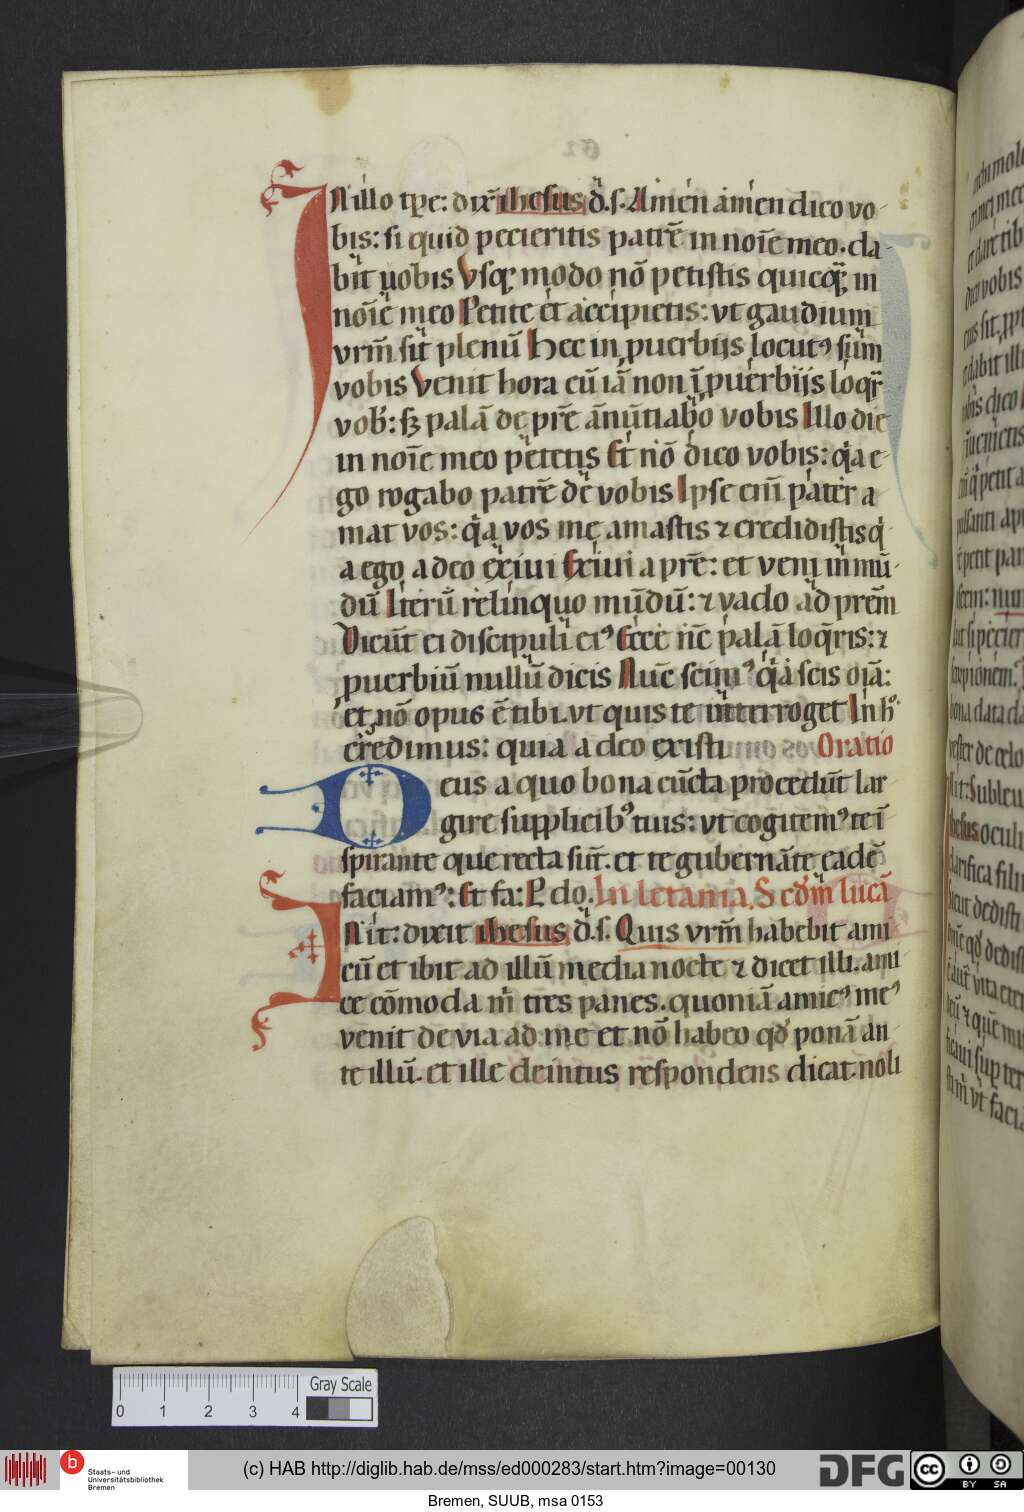 IN illo tp̄e: dix̄ ihesus d̄.s. Amen amen dico vo-
bis: si quid pecieritis patrē in noīe meo. da-
bit vobis Vsq; modo nō petistis quicq̄; in
noīe meo Petite et accipietis: vt gaudium
vrm̄ sit plenū Hec in puerbijs locut⁹ sum
vobis Venit hora cū iā non ī puerbijs loqr̄
vob̄: sꝫ palā de pr̄e ānūtiabo vobis Illo die
in noīe meo petetis Et nō dico vobis: q̄a e-
go rogabo patrē de vobis Ipse eni̅ pater a
mat vos: q̄a vos me amastis ⁊ credidistis q̄
a ego a deo exiui Exiui a prē: et veni in mū-
dū Iterū relinquo mūdū: ⁊ vado ad prem̄
Dicūt ei discipuli ei⁹ Ecce nc̄ palā loq̄ris: ⁊
puerbiū nullū dicis Nūc scim⁹ q̄a scis oīa:
et nō opus ē tibi. vt quis te interroget In h⁹
credimus: quia a deo existi Oratio
Deus a quo bona cūcta procedūt lar
gire supplicib⁹ tuis: vt cogitem⁹ te ī
spirante que recta sūt. et te gubernāte eadē
faciam⁹: Et fa: P do. In letania. Scdm̄ lucā
IN it: dixit ihesus d̄.s. Quis vrm̄ habebit ami
cū et ibit ad illū media nocte ⁊ dicet illi. ami
ce cōmoda m̄ tres panes. quoniā amic⁹ me⁹
venit de via ad me et nō habeo qd̄ ponā an-
te illū. et ille deintus respondens dicat. noli
Gray Scale
0 1 2 3 4
b Staats- und
Universitätsbibliothek
Bremen
(c) HAB http://diglib.hab.de/mss/ed000283/start.htm?image=00130
DFG
cc BY SA
Bremen, SUUB, msa 0153